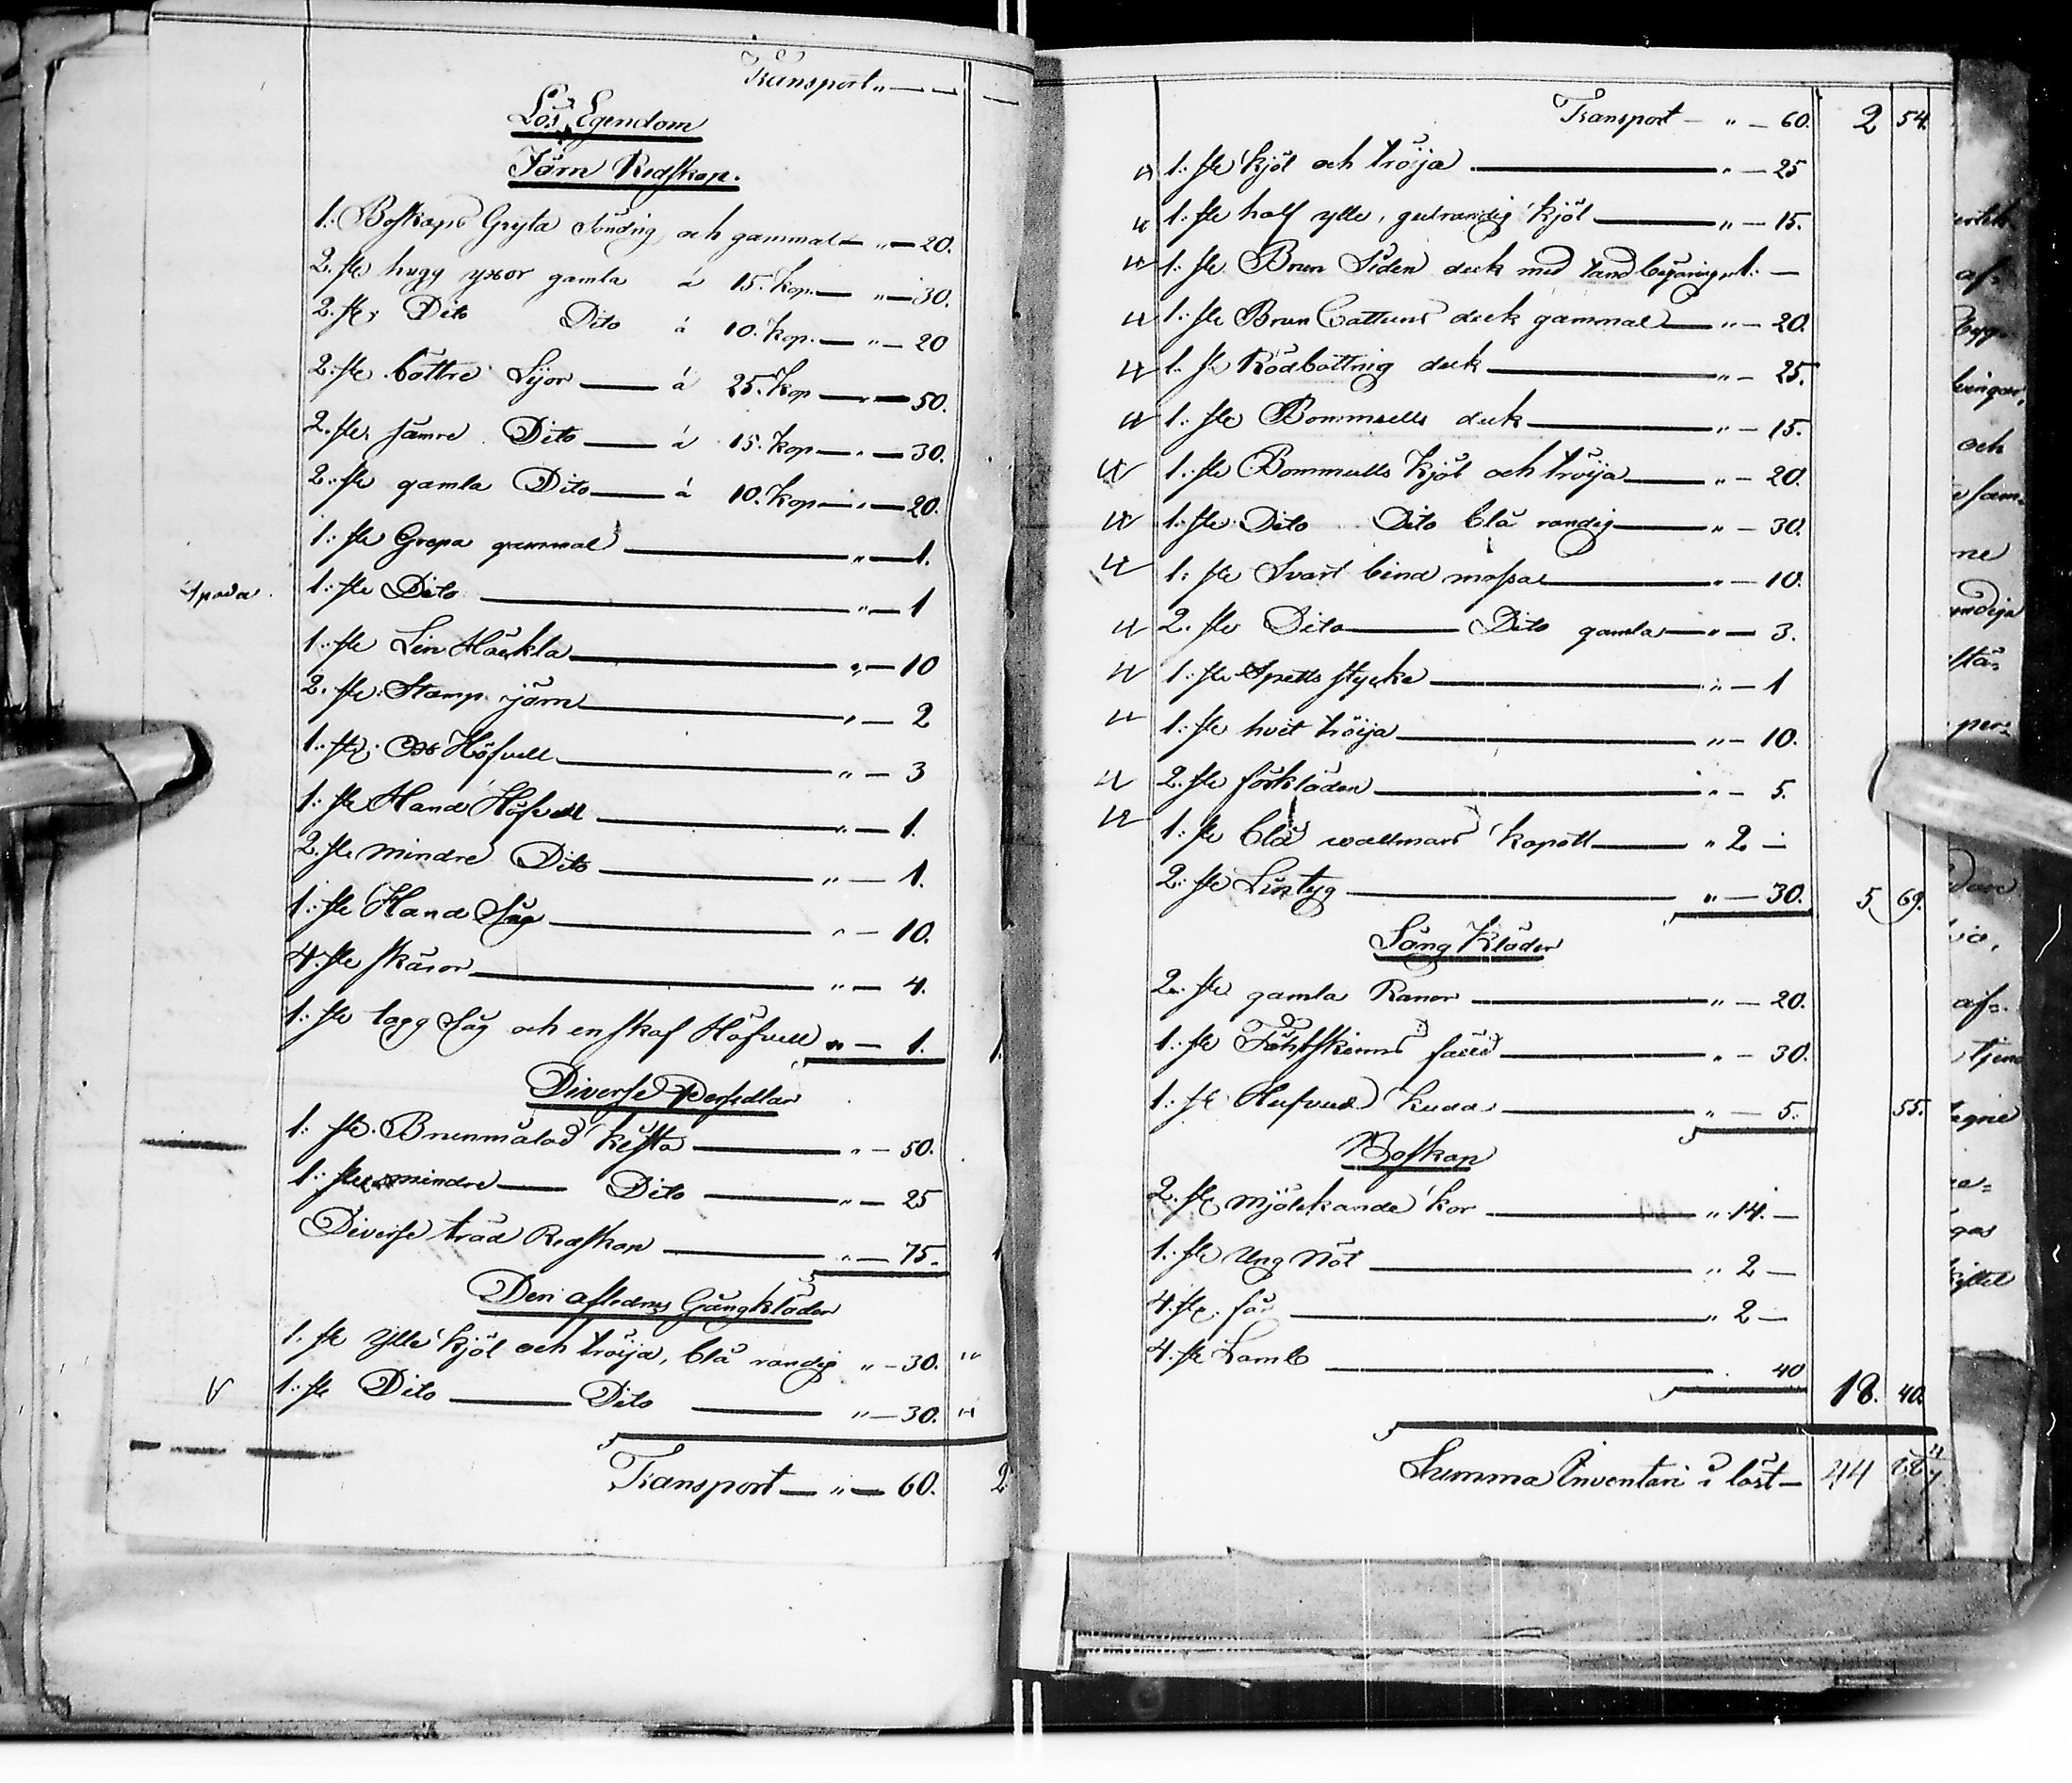 Transport „ — —
Lös Egendom
Järn Redskap.
1: Boskaps Gryta söndrig och gammal — „ — 20.
2. ste hugg yxor gamla á 15. Kop. — „ — 30.
2. ste Dito Dito á 10. Kop. — „ — 20
2. ste bättre Lijor — á 25. Kop — „ — 50.
2. ste sämre Dito — á 15. Kop — „ — 30.
2. ste gamla Dito — á 10. Kop — „ — 20.
1: ste Grepa gammal — „ — 1.
Spada. 1: ste Dito — „ — 1
1: ste Lin Häckla — „ — 10
2. ste Stamp järn — „ — 2
1. ste Höfvell — „ — 3
1: ste Hand Höfvell — „ — 1.
2. ste mindre Dito — „ — 1.
1: ste Hand Såg — „ — 10.
4. ste skäror — „ — 4.
1: ste lagg Såg och en skaf Höfvell „ — 1. 1.
Diverse Persedlar
1: ste Brunmålad kista — „ — 50.
1: ste mindre — Dito — „ — 25
Diverse träd Redskap — „ — 75. 1
Den aflednes Gångkläder
1. ste ylle kjöl och tröija, blå randig „ — 30. "
V 1: ste Dito — Dito — „ — 30. "
Transport — „ — 60. 2.
Transport — „ — 60. 2 54.
1: ste kjöl och tröija — „ — 25
1: ste half ylle, gulrandig kjöl — „ — 15.
1: ste Brun Siden duk med 1. —
1: ste Brun Cattuns duk gammal — „ — 20.
1. ste Rödbottnig duk — „ — 25.
1. ste Bommulls duk — „ — 15.
1: ste Bommulls kjöl och tröija — „ — 20.
1: ste Dito Dito blå randig — „ — 30.
1: ste Svart bind mössa — „ — 10.
2. ste Dito — Dito gamla — „ — 3.
1: ste Spetts stycke — „ — 1
1: ste hvit tröija — „ — 10.
2. ste förkläden — „ — 5.
1: ste blå wallmars kapott — „ 2 —
2: ste Lintyg — „ — 30. 5 69.
Säng Kläder
2. ste gamla Ranor — „ — 20.
1: ste Fåhrskinns fäll — „ — 30.
1: ste Hufvud kudd — „ — 5. 55.
Boskap
2. ste mjölkande kor — „ 14. —
1: ste Ung Nöt — „ 2 —
4. ste får — „ 2 —
4. ste Lamb — . 40 18. 40.
Summa Inventari i löst —